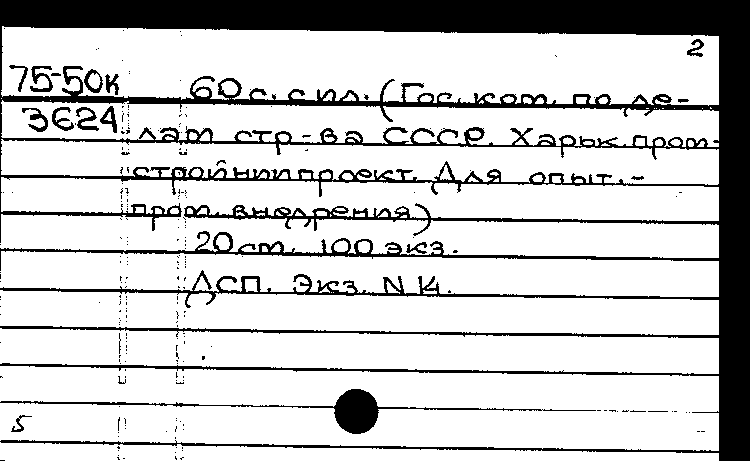 2
75-50к 60 с. с ил. (Гос. ком. по де-
3624 лам стр-ва СССР. Харьк. пром-
стройниипроект. Для опыт.-
пром. внедрения)
20 см. 100 экз.
ДСП. Экз. N 14.
5